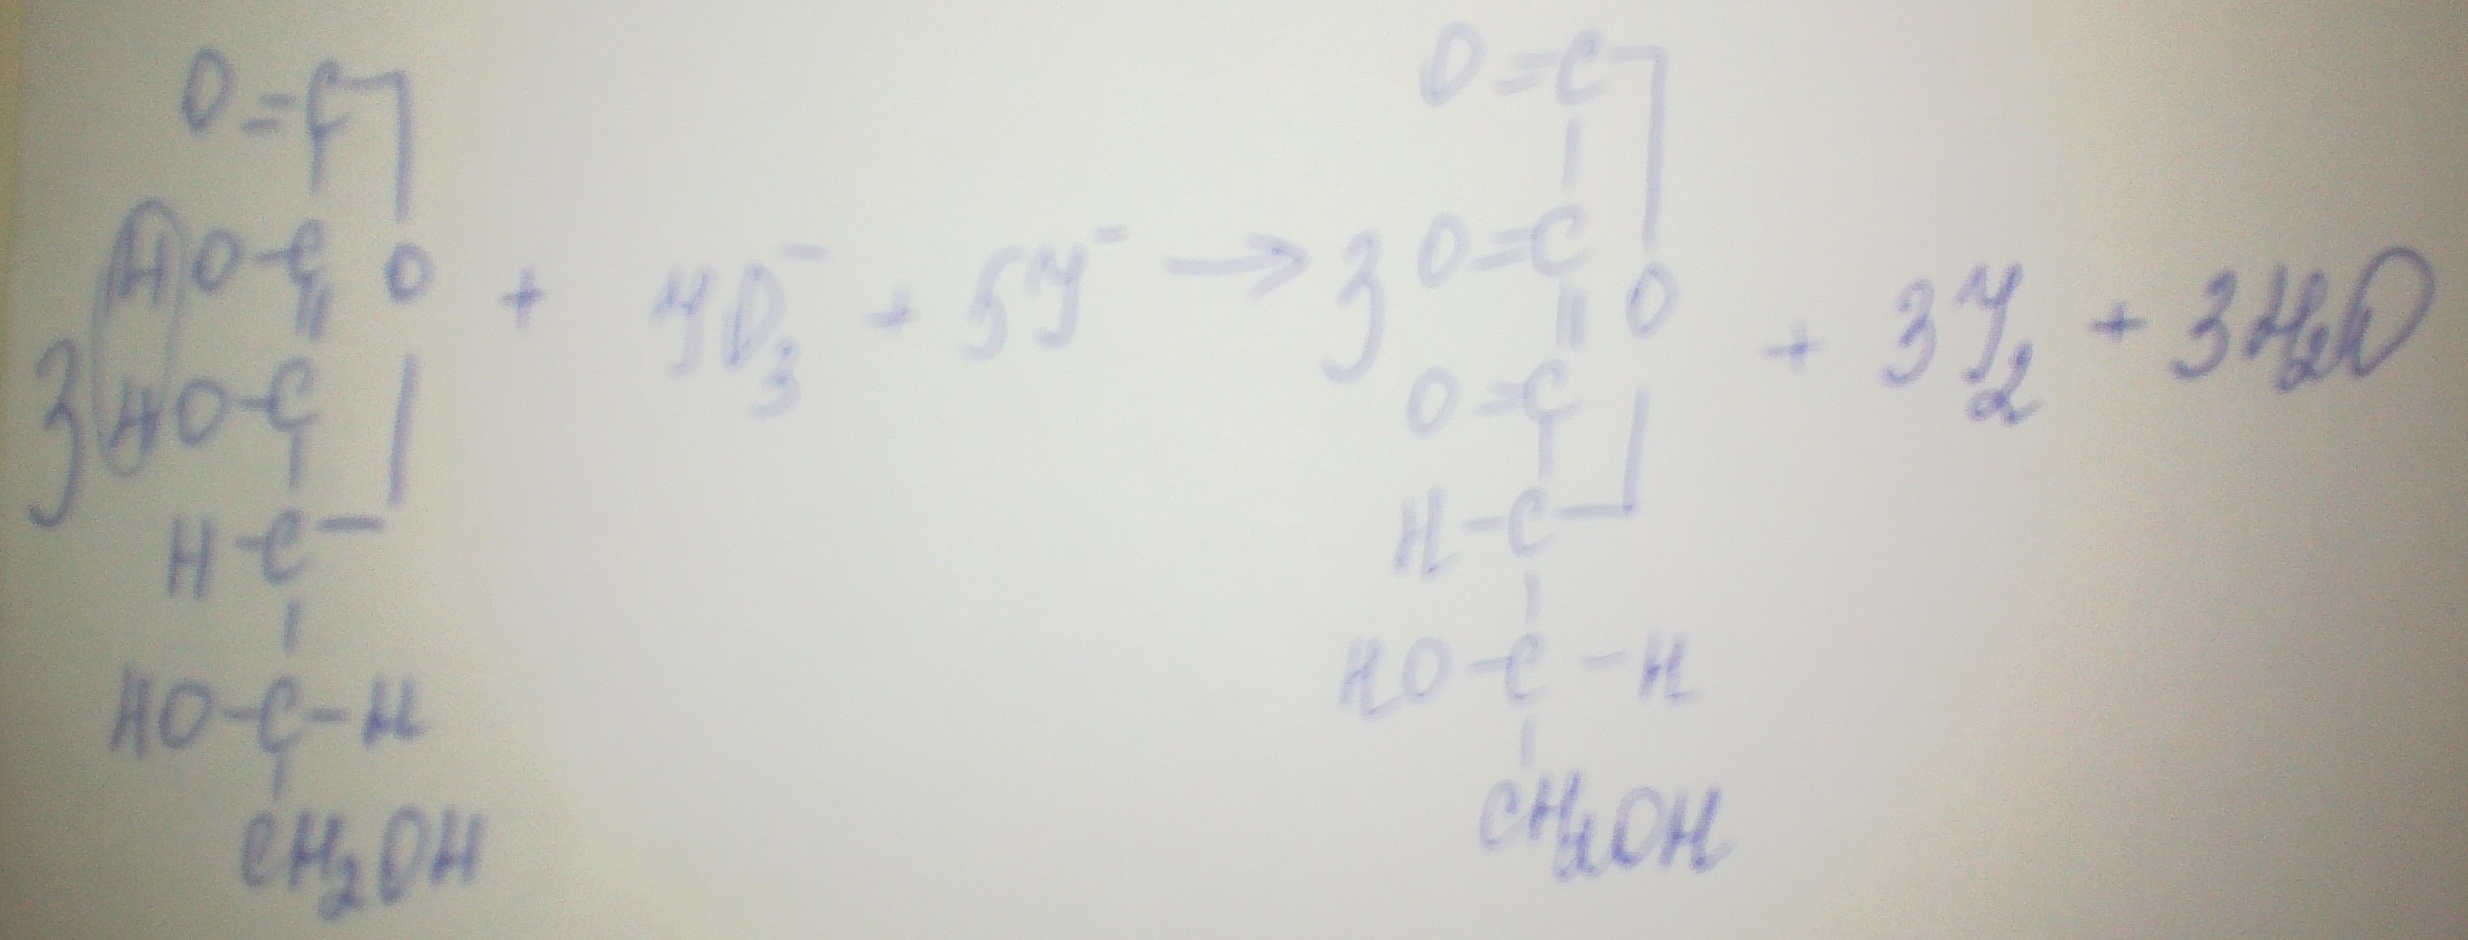 O=C
HO-C O
3 HO-C
H-C-
HO-C-H
CH₂OH
+ YO₃⁻ + 5Y⁻ →
O=C
3 O=C O
O=C
H-C-
HO-C-H
CH₂OH
+ 3Y₂ + 3H₂O